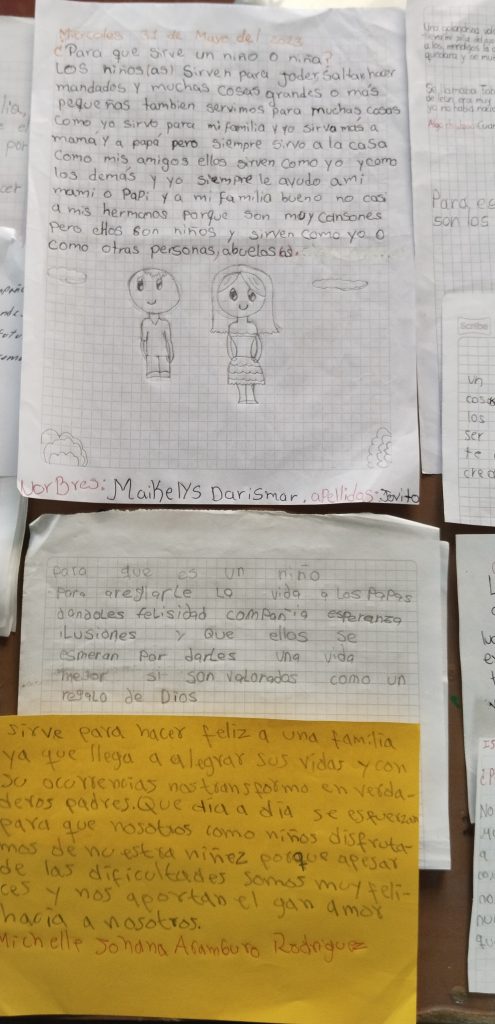 Miercoles 31 de Mayo del 2023
¿Para que sirve un niño o niña?
Los niños(as) Sirven para joder, Saltar, hacer
mandados y muchas cosas grandes o más
pequeñas tambien servimos para muchas cosas
Como yo sirvo para mi familia y yo sirva más a
mamá y a papá pero siempre sirvo a la casa
Como mis amigos ellos sirven como yo y como
los demás y yo siempre le ayudo a mi
mami o Papi y a mi familia bueno no casi
a mis hermanos porque son muy Cansones
Pero ellos son niños y sirven como yo o
Como otras personas, abuelos
NorBres: Maikelys Darismar. apellidos: Jovito
para que es un niño
Para areglarle la vida a los Papas
dandoles felisidad compañia esperanza
iLusiones y que ellos se
esmeran por darles una vida
mejor si son valorados como un
regalo de Dios
sirve para hacer feliz a una familia
ya que llega a alegrar sus vidas y con
su ocurrencias nos transformo en verda-
deros padres. Que dia a dia se esfuerzan
para que nosotros como niños disfruta-
mos de nuestra niñez porque apesar
de las dificultades somos muy feli-
ces y nos aportan el gan amor
hacia a nosotros.
Michelle Johana Aramburo Rodriguez
Para es
son los
scribe
un
cosas
los
ser
te
crea